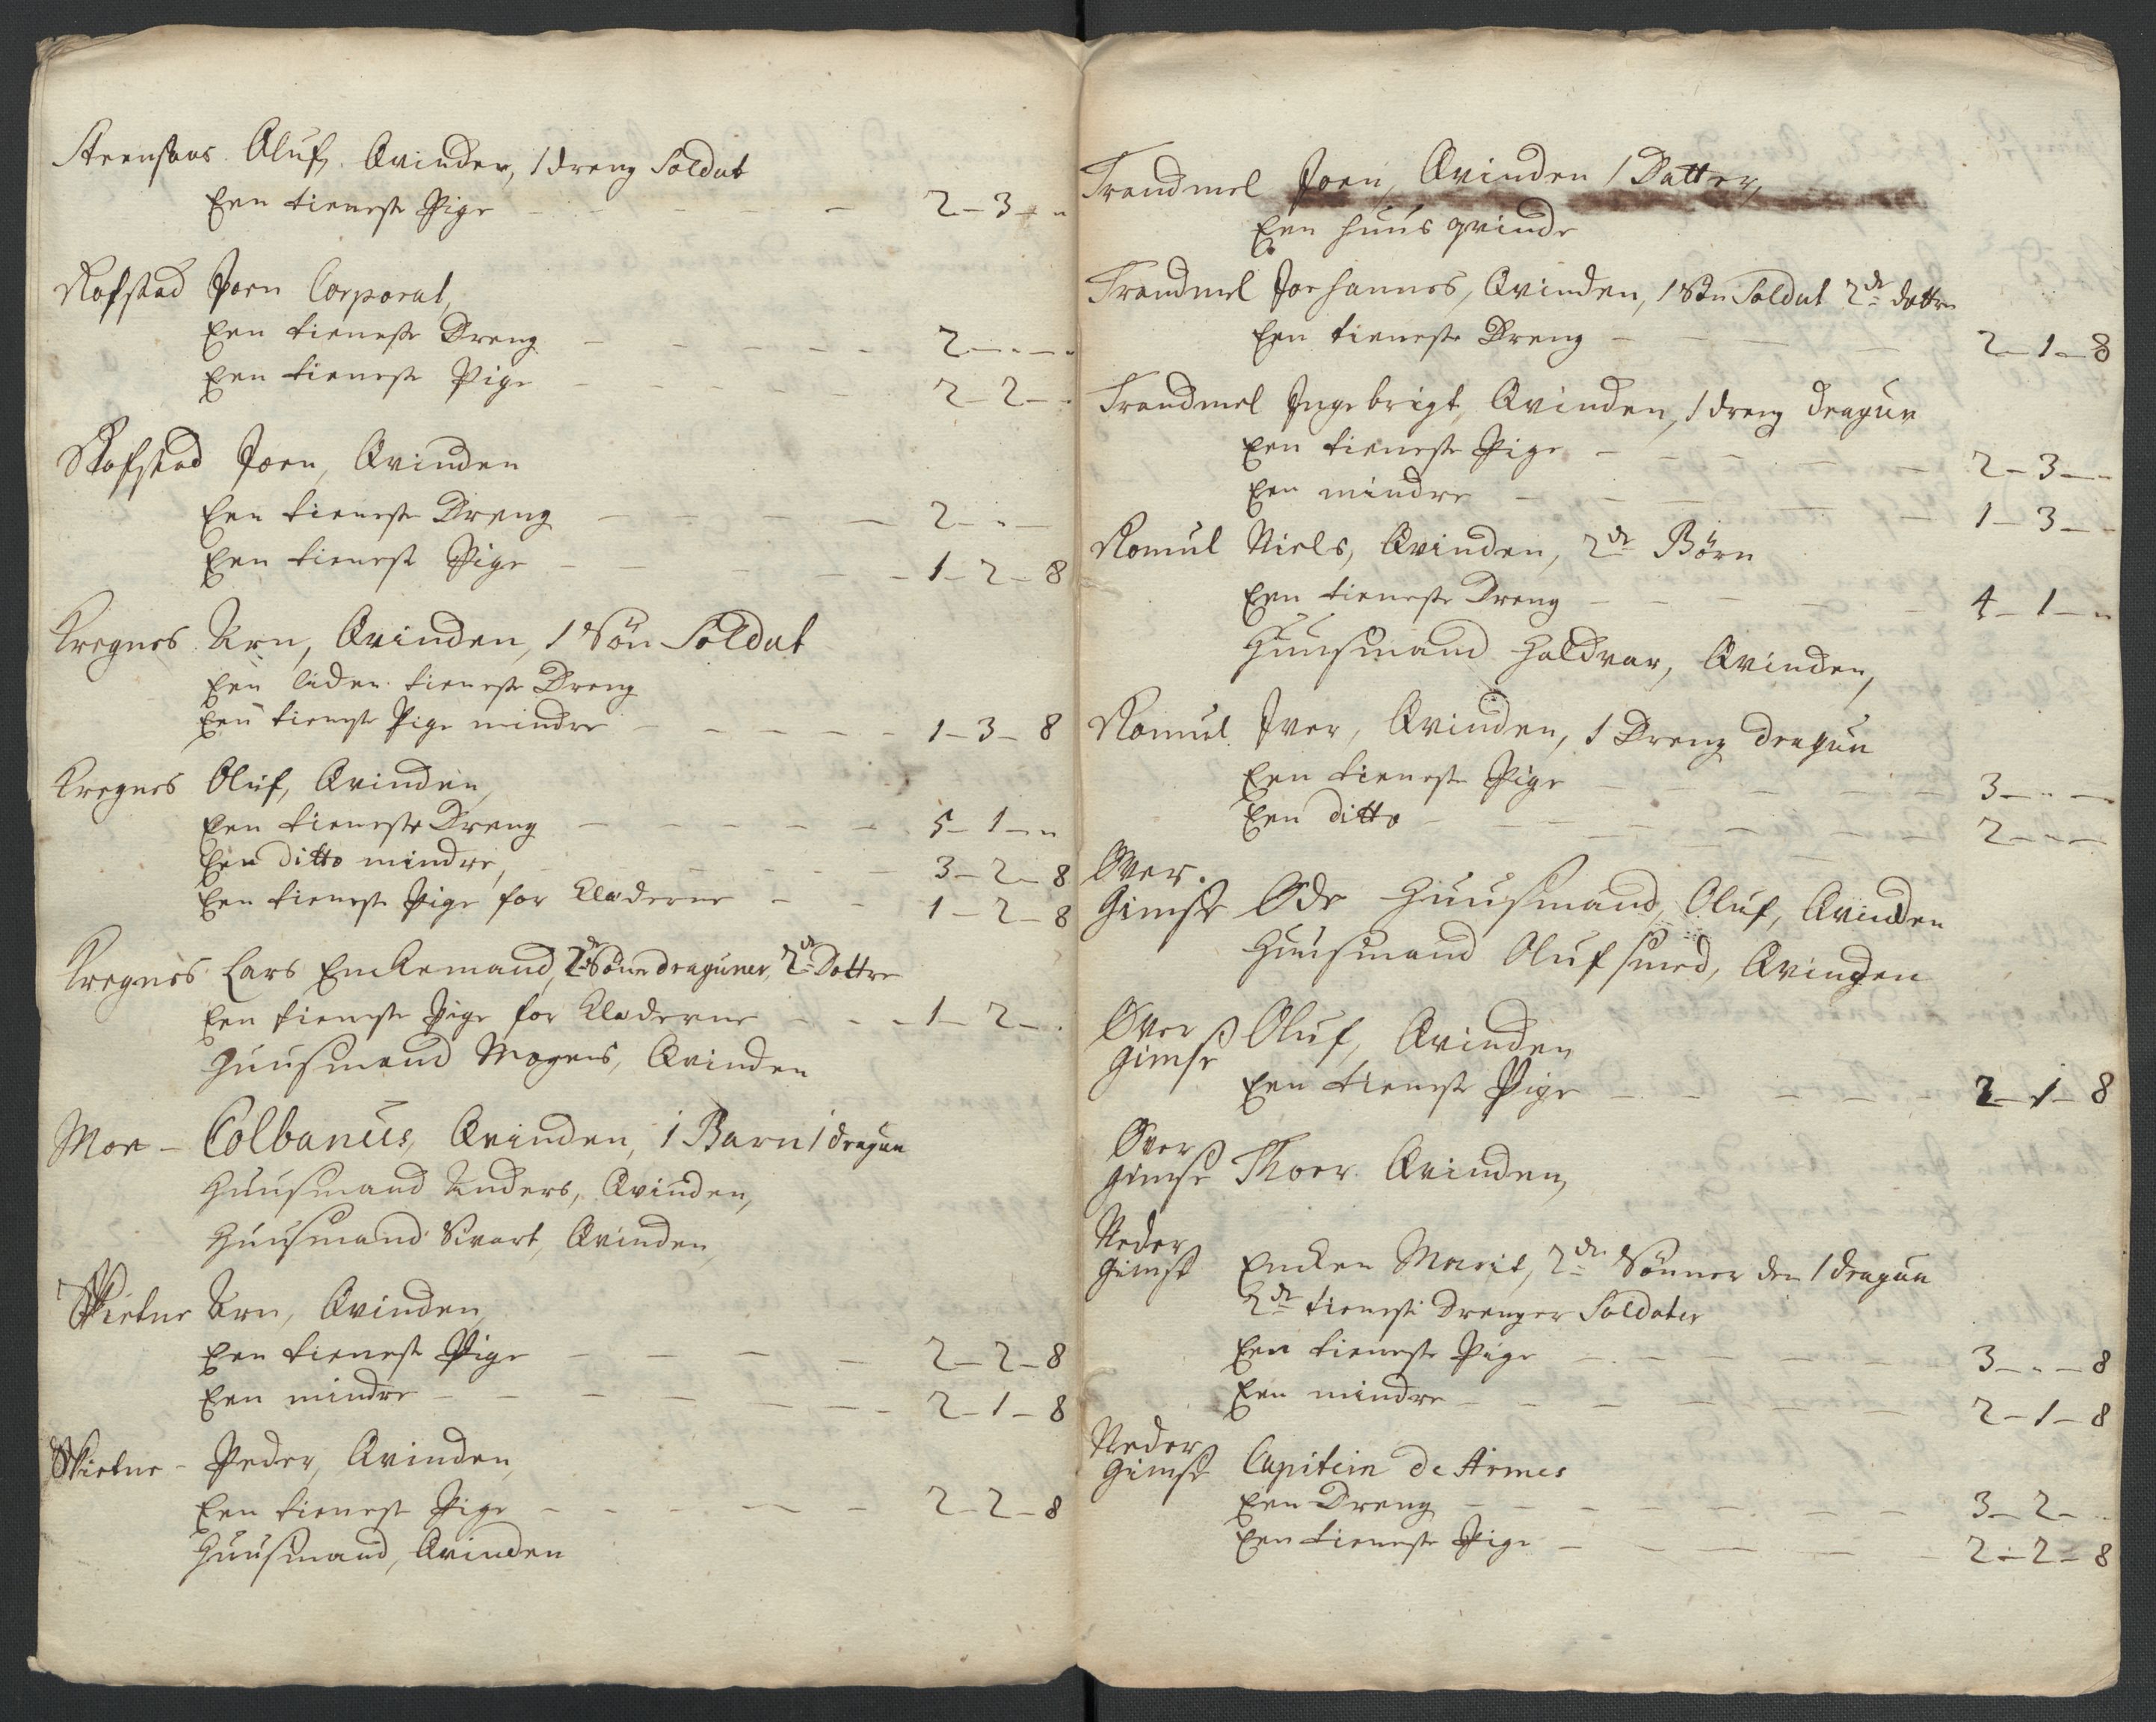 Steensaas Oluf, Qvinden, 1 dreng Soldat
Een tieneste Pige - - - - - 2-3-"
Rofstad Joen Corporal,
Een tieneste Dreng - - - - - 2-"-"
Een tieneste Pige - - - - - 2-2-"
Rofstad Joen, Qvinden
Een tieneste Dreng - - - - - 2-"-
Een tieneste Pige - - - - - 1-2-8
Kregnes Arn, Qvinden, 1 Søn Soldat
Een liden tieneste Dreng
Een tieneste Pige mindre - - - - - 1-3-8
Kregnes Oluf, Qvinden,
Een tieneste Dreng - - - - - 5-1-"
Een ditto mindre, - - - - - 3-2-8
Een tieneste Pige for Klæderne - - 1-2-8
Kregnes Lars Enckemand, 2de Søner draguner, 2de Dottre
Een tieneste Pige for Klæderne - - - 1-2-"
Huusmand Mogens, Qvinden
Moe - Colbanus, Qvinden, 1 Barn 1 dragun
Huusmand Anders, Qvinden,
Huusmand Sivart, Qvinden,
Skietne Arn, Qvinden,
Een tieneste Pige - - - - 2-2-8
Een mindre - - - - - 2-1-8
Skietne - Peder, Qvinden,
Een tieneste Pige - - - - - 2-2-8
Huusmand, Qvinden
Trandmel Joen, Qvinden 1 Datter,
Een huus qvinde
Trandmel Johannes, Qvinden, 1 Søn Soldat 2de dottre
Een tieneste Dreng - - - 2-1-8
Trandmel Ingebrigt, Qvinden, 1 dreng dragun
Een tieneste Pige - - - - - 2-3-"
Een mindre - - - - - 1-3-"
Romul Niels, Qvinden, 2de Børn
Een tieneste Dreng - - - - - 4-1-"
Huusmand Haldvar, Qvinden,
Romul Iver, Qvinden, 1 Dreng dragun
Een tieneste Pige - - - - - 3-"-
Een ditto - - - - - 2-"-
Over
Gimse Øde Huusmand, Oluf, Qvinden
Huusmand Oluf smed, Qvinden
Over
Gimse Oluf, Qvinden
Een tieneste Pige - - - - - 2-1-8
Over
Gimse Thoer Qvinden,
Neder
Gimse Encken Marit, 2de Sønner den 1 dragun
2de tieneste Drenger Soldater
Een tieneste Pige - - - - - 3-"-8
Een mindre - - - - - 2-1-8
Neder
Gimse Capitein de Armes
Een Dreng - - - - - 3-2-"
Een tieneste Pige - - - - - 2-2-8